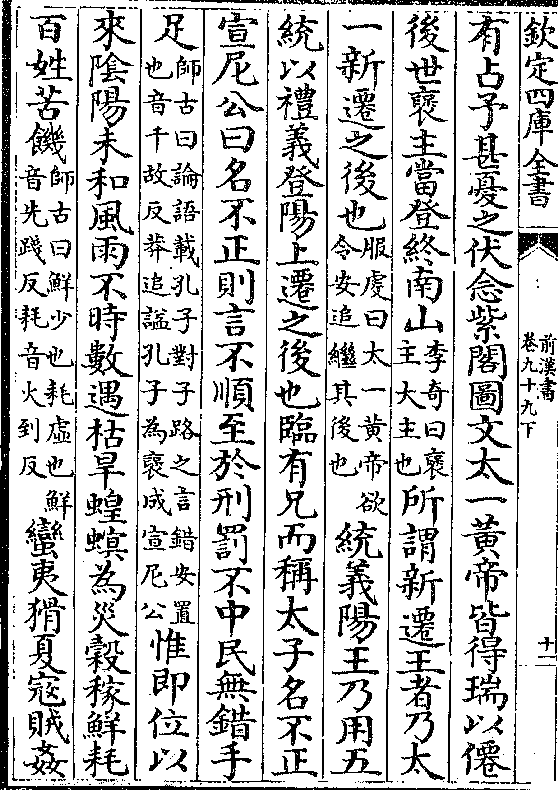 欽定四庫全書
前漢書
卷九十九下
十一
有占予甚憂之伏念紫閣圖文太一黄帝皆得瑞以僊
後世褒主當登終南山李奇曰褒主大主也所謂新遷王者乃太
一新遷之後也服虔曰太一黄帝欲令安追繼其後也統義陽王乃用五
統以禮義登陽上遷之後也臨有兄而稱太子名不正
宣尼公曰名不正則言不順至於刑罰不中民無錯手
足師古曰論語載孔子對子路之言錯安置也音千故反莽追諡孔子為褒成宣尼公惟即位以
來隂陽未和風雨不時數遇枯旱蝗螟為災穀稼鮮耗
百姓苦饑師古曰鮮少也耗虛也鮮音先踐反耗音火到反蠻夷猾夏寇賊姦